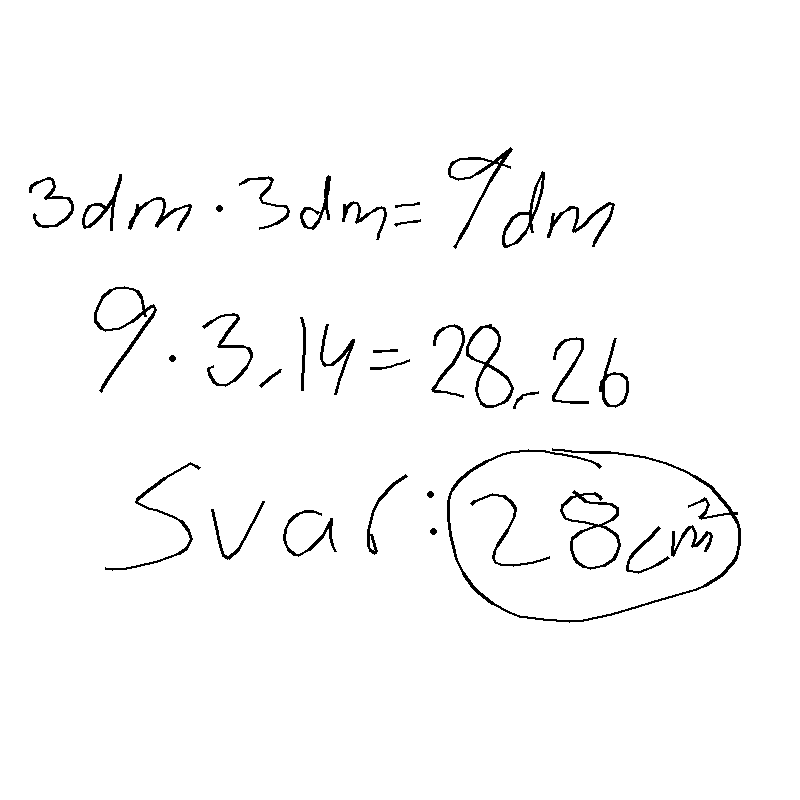 3dm · 3dm = 9dm
9 · 3,14 = 28,26
Svar: 28cm²